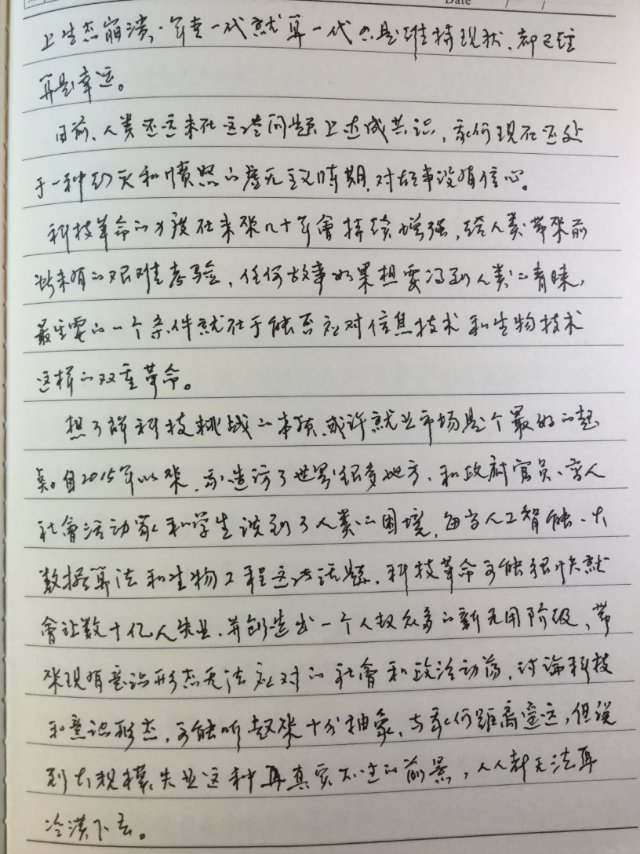 Date
上生态崩溃,牢走一代就算一代只是维持现状,都已经
算是幸运。
目前,人类还远未在这些问题上达成共识,我们现在还处
于一种幻灭和愤怒的虚无主义时期,对故事没有信心。
科技革命的力度在未来几十年會持续增强,给人类带来前
所未有的艰难考验,任何故事如果想要得到人类的青睐,
最主要的一个条件就在于能否应对信息技术和生物技术
这样的双重革命。
想了解科技挑战的本质,或许就业市场是个最好的起
点。自2015年以来,我造访了世界很多地方,和政府官员、商人
社會活动家和学生谈到了人类的困境,每当人工智能、大
数据算法和生物工程这些话题,科技革命可能很快就
會让数十亿人失业,并创造出一个人数众多的新无用阶级,带
来现有意识形态无法应对的社會和政治动荡,讨论科技
和意识形态,可能听起来十分抽象,与我们距离遥远,但说
到大规模失业这种再真实不过的前景,人人都无法再
冷漠下去。